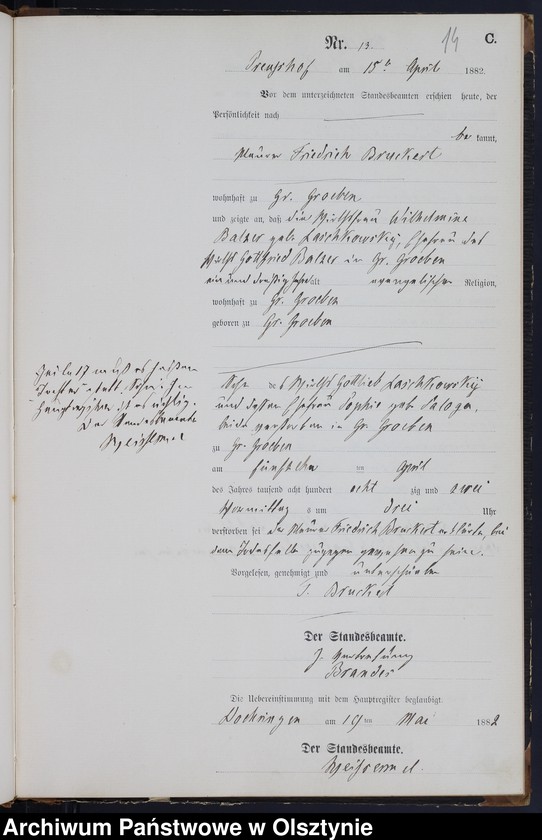 14 C.
Nr. 13.
am 15ten April 1882.
Vor dem unterzeichneten Standesbeamten erschien heute, der
Persönlichkeit nach
be kannt,
Maurer Friedrich Bruckert
wohnhaft zu Gr. Groeben
und zeigte an, daß die Wirthsfrau Wilhelmine
Balzer geb. Laschkowsky, Ehefrau des
Wirths Gottfried Balzer in Gr. Groeben
ein und dreißig Jahr alt evangelischer Religion,
wohnhaft zu Gr. Groeben
geboren zu Gr. Groeben
Zeile 17 muß es heißen
"Tochter" statt "Sohn". Im
Hauptregister ist es richtig.
Der Standesbeamte
Sohn des Wirths Gottlieb Laschkowsky
und dessen Ehefrau Sophie geb.
beide verstorben in Gr. Groeben
zu Gr. Groeben
am fünfzehnten April
des Jahres tausend acht hundert acht zig und zwei
Vormittags um drei Uhr
verstorben sei der Maurer Friedrich Bruckert erklärte, bei
dem Todesfalle zugegen gewesen zu sein.
Vorgelesen, genehmigt und unterschrieben
F. Bruckert
Der Standesbeamte.
In Vertretung
Brandes
Die Uebereinstimmung mit dem Hauptregister beglaubigt
Doehringen am 19ten Mai 1882
Der Standesbeamte.
Archiwum Państwowe w Olsztynie